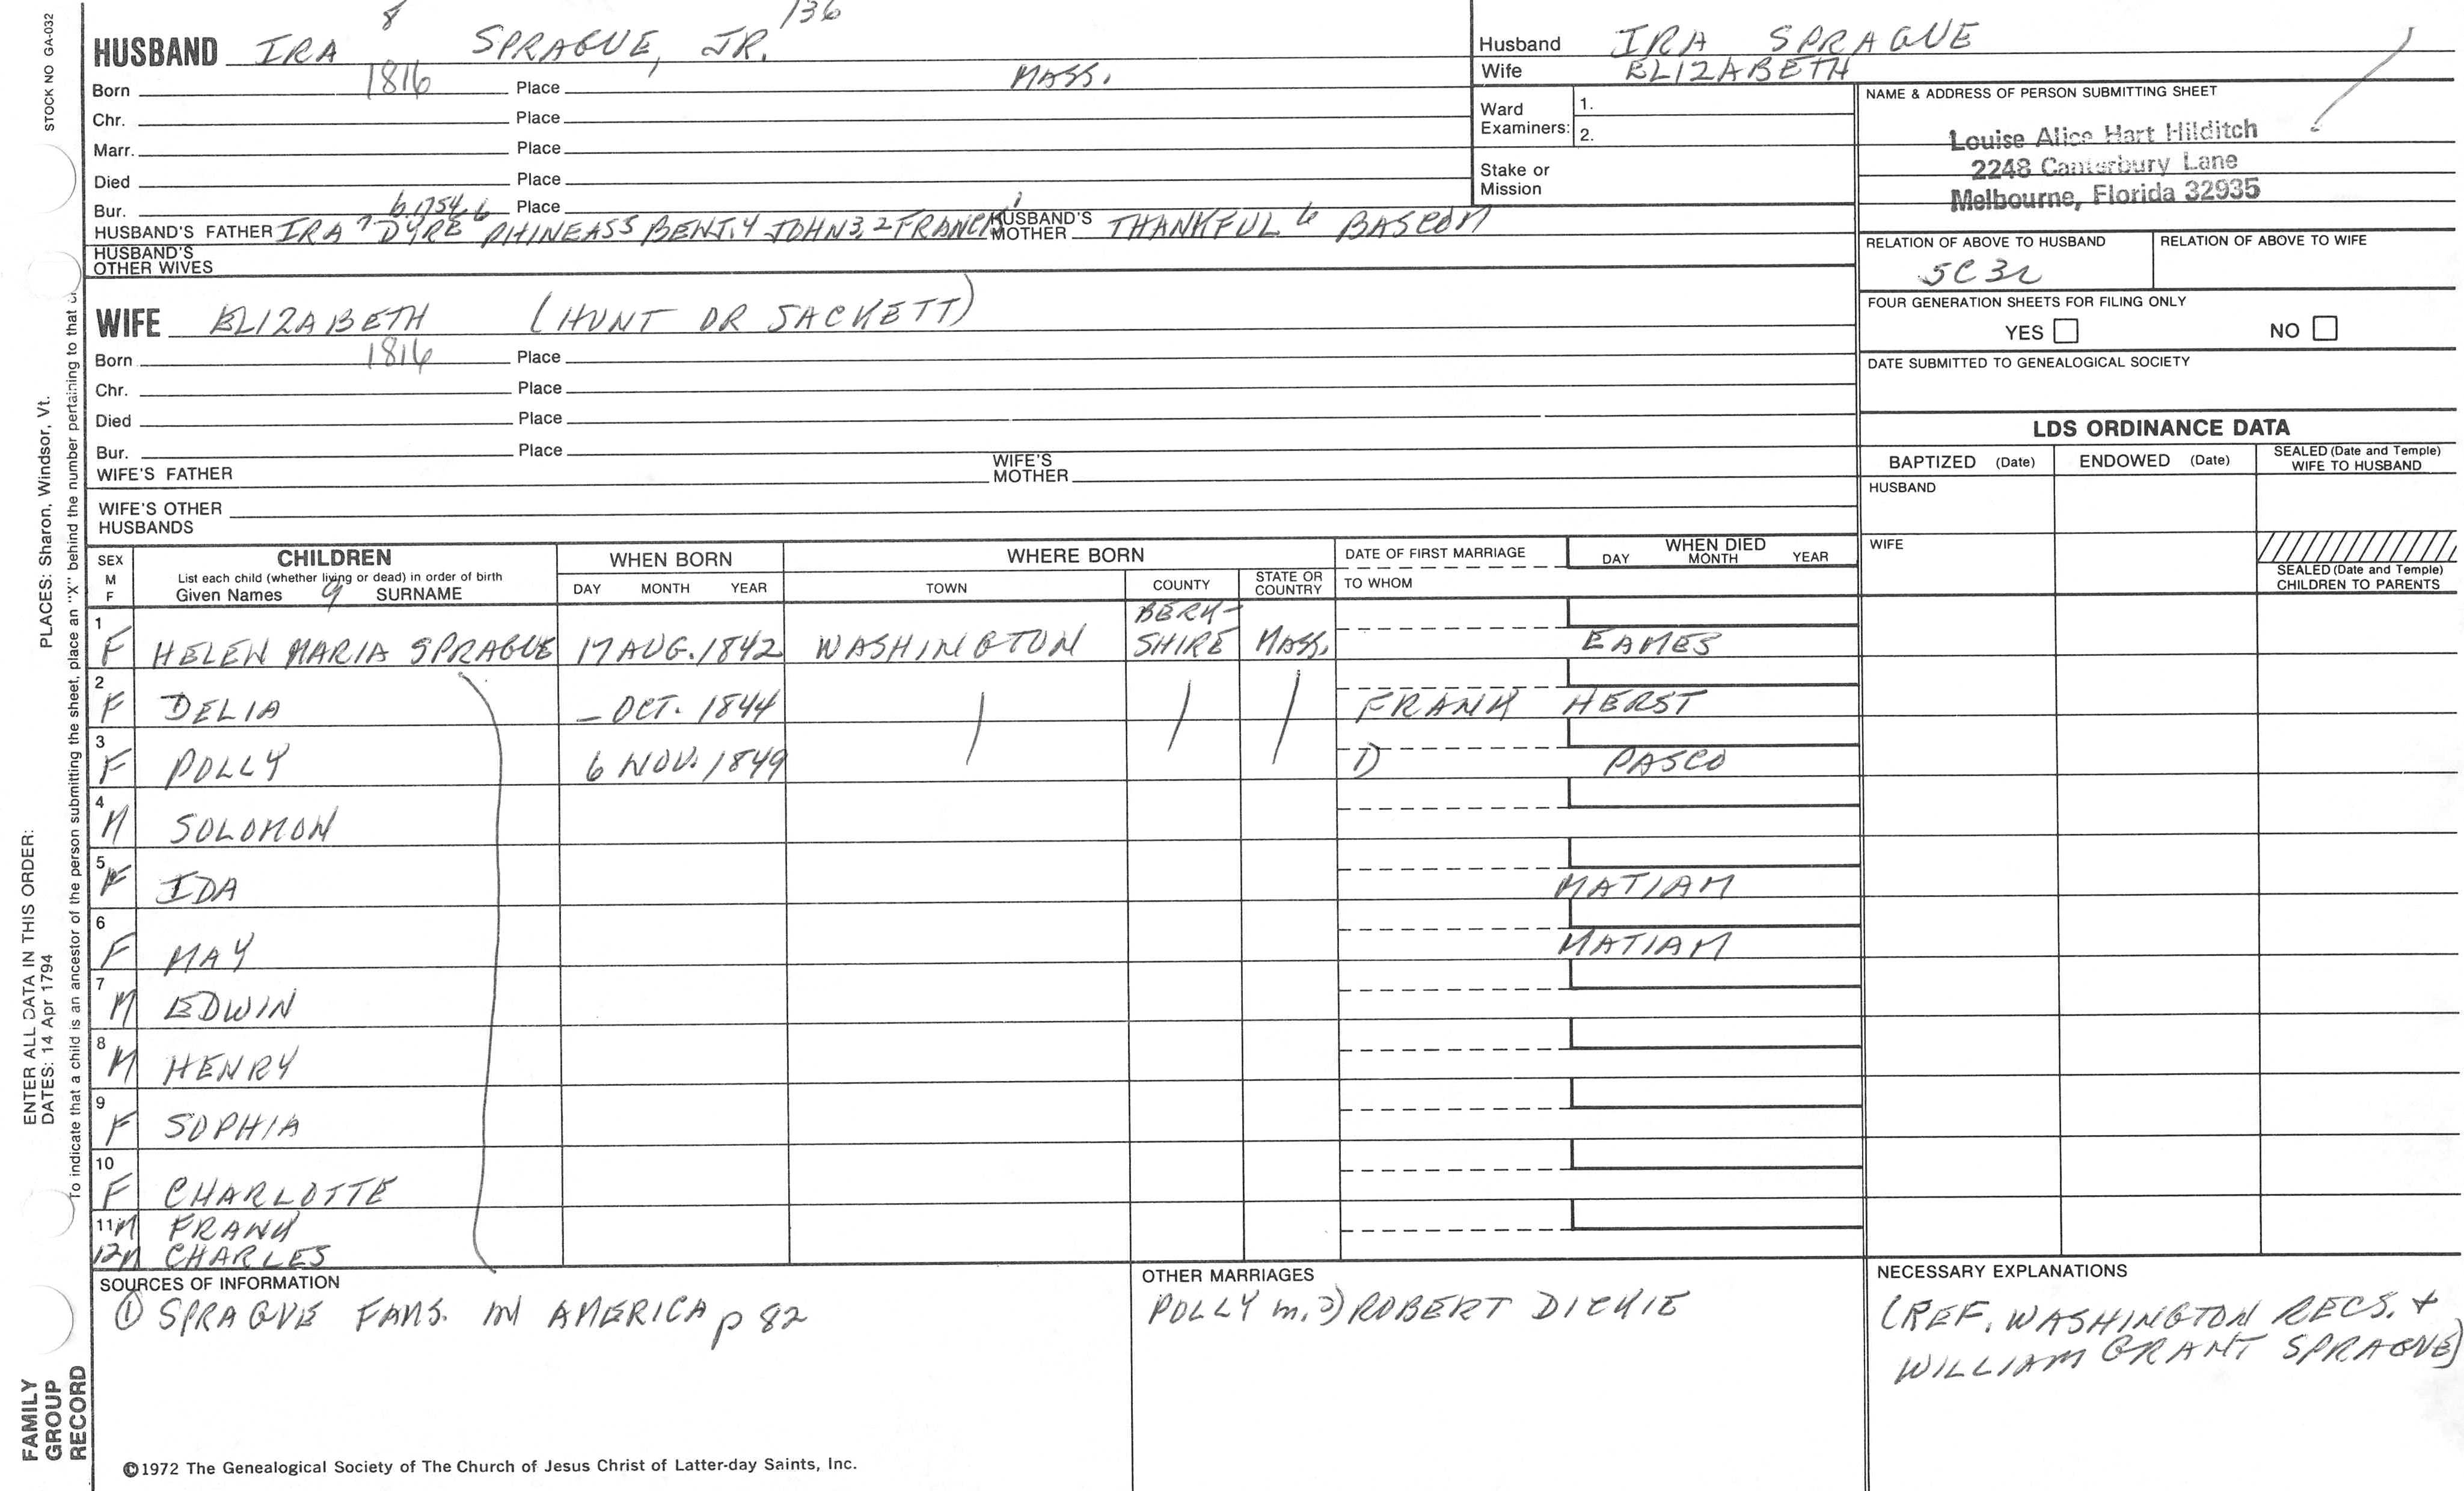 8 136
HUSBAND IRA SPRAGUE, JR.
Born 1816 Place MASS.
Chr. Place
Marr. Place
Died Place
Bur. b.1754 6 Place
HUSBAND'S FATHER IRA 7 DYRE PHINEAS5 BENJ.4 JOHN3,2 FRANCIS1 HUSBAND'S MOTHER THANKFUL 6 BASCOM
HUSBAND'S OTHER WIVES
WIFE ELIZABETH (HUNT OR SACKETT)
Born 1816 Place
Chr. Place
Died Place
Bur. Place
WIFE'S FATHER WIFE'S MOTHER
WIFE'S OTHER HUSBANDS
Husband IRA SPRAGUE
Wife ELIZABETH
Ward Examiners: 1.
2.
Stake or Mission
NAME & ADDRESS OF PERSON SUBMITTING SHEET
Louise Alice Hart Hilditch
2248 Canterbury Lane
Melbourne, Florida 32935
RELATION OF ABOVE TO HUSBAND RELATION OF ABOVE TO WIFE
5C3R
FOUR GENERATION SHEETS FOR FILING ONLY
YES NO
DATE SUBMITTED TO GENEALOGICAL SOCIETY
LDS ORDINANCE DATA
BAPTIZED (Date) ENDOWED (Date) SEALED (Date and Temple) WIFE TO HUSBAND
HUSBAND
WIFE
SEALED (Date and Temple) CHILDREN TO PARENTS
SEX M F CHILDREN WHEN BORN WHERE BORN DATE OF FIRST MARRIAGE WHEN DIED
List each child (whether living or dead) in order of birth DAY MONTH YEAR
Given Names 9 SURNAME DAY MONTH YEAR TOWN COUNTY STATE OR COUNTRY TO WHOM
1 F HELEN MARIA SPRAGUE 17 AUG. 1842 WASHINGTON BERK-SHIRE MASS. EAMES
2 F DELIA – OCT. 1844 FRANK HERST
3 F POLLY 6 NOV. 1849 1) PASCO
4 M SOLOMON
5 F IDA MATIAM
6 F MAY MATIAM
7 M EDWIN
8 M HENRY
9 F SOPHIA
10 F CHARLOTTE
11 M FRANK
12 M CHARLES
SOURCES OF INFORMATION
① SPRAGUE FAMS. IN AMERICA p 82
OTHER MARRIAGES
POLLY m. 2) ROBERT DICKIE
NECESSARY EXPLANATIONS
(REF. WASHINGTON RECS. +
WILLIAM GRANT SPRAGUE)
©1972 The Genealogical Society of The Church of Jesus Christ of Latter-day Saints, Inc.
STOCK NO GA-032
PLACES: Sharon, Windsor, Vt.
To indicate that a child is an ancestor of the person submitting the sheet, place an "X" behind the number pertaining to that
ENTER ALL DATA IN THIS ORDER:
DATES: 14 Apr 1794
FAMILY
GROUP
RECORD